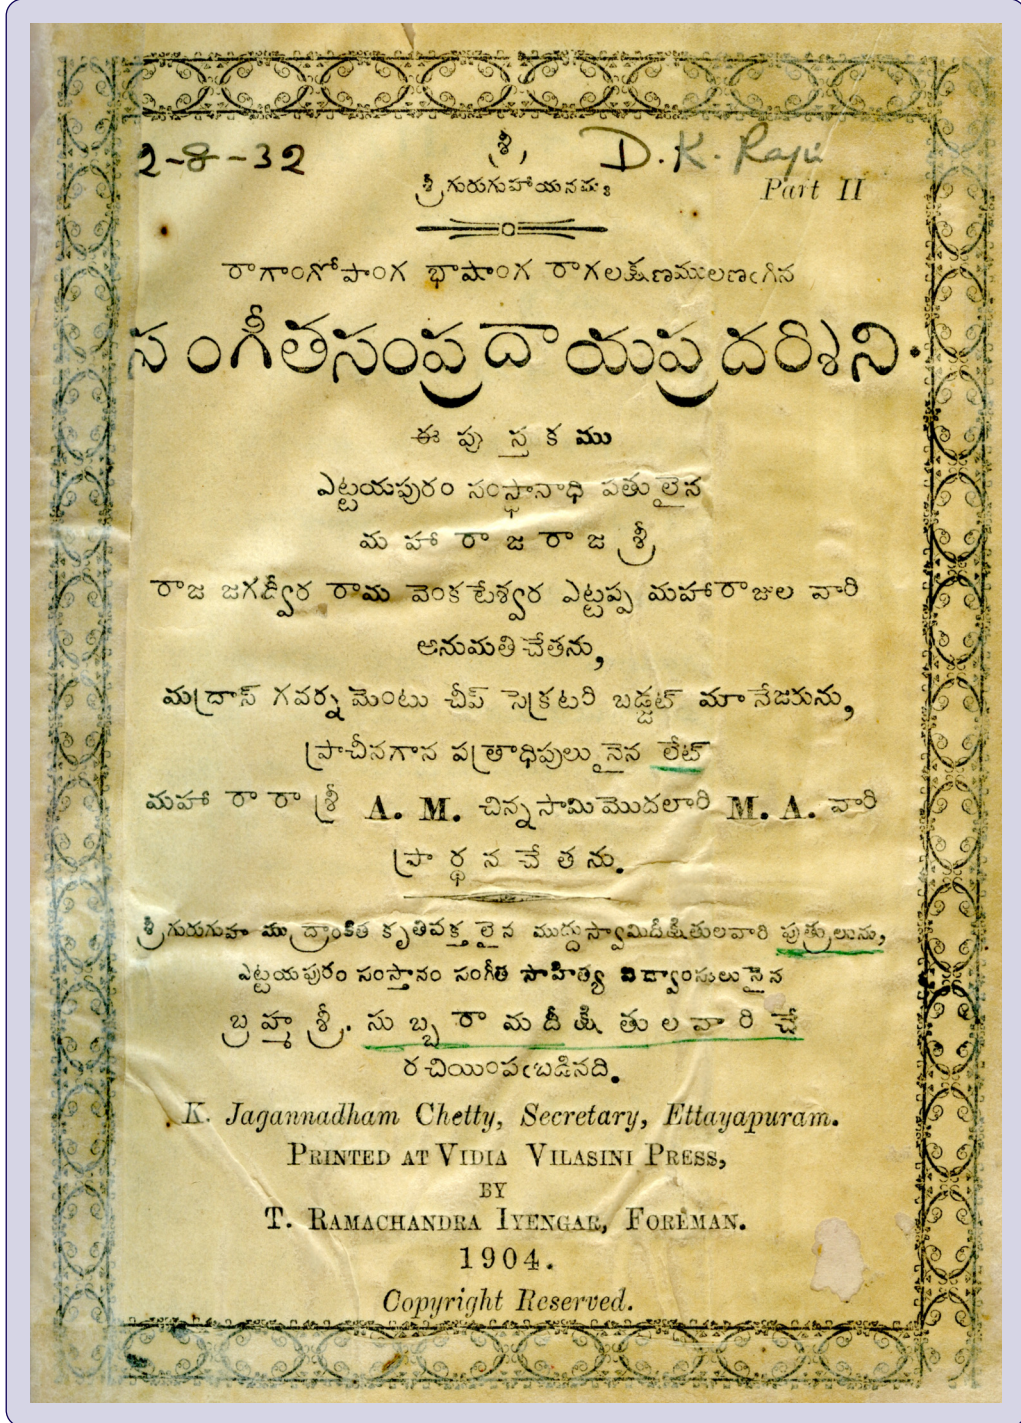 2-8-32 శ్రీ, D. K. Raju
శ్రీగురుగుహాయనమః Part II
రాగాంగోపాంగ భాషాంగ రాగలక్షణములణఁగిన
సంగీతసంప్రదాయప్రదర్శిని.
ఈ పు స్త క ము
ఎట్టయపురం సంస్థానాధి పతులైన
మ హా రా జ రా జ శ్రీ
రాజ జగద్వీర రామ వెంకటేశ్వర ఎట్టప్ప మహారాజుల వారి
అనుమతిచేతను,
మద్రాస్ గవర్న మెంటు చీప్ సెక్రటరి బడ్జట్ మా నేజరును,
ప్రాచీనగాన పత్రాధిపులునైన లేట్
మహా రా రా శ్రీ A. M. చిన్నసామిమొదలారి M. A. వారి
ప్రా ర్థ న చే త ను.
శ్రీగురుగుహ ముద్రాంకిత కృతివక్తలైన ముద్దుస్వామిదీక్షితులవారి పుత్రులును,
ఎట్టయపురం సంస్తానం సంగీత సాహిత్య విద్వాంసులునైన
బ్రహ్మశ్రీ. సు బ్బ రా మ దీ క్షి తు ల వా రి చే
రచియింపఁబడినది.
K. Jagannadham Chetty, Secretary, Ettayapuram.
PRINTED AT VIDIA VILASINI PRESS,
BY
T. RAMACHANDRA IYENGAR, FOREMAN.
1904.
Copyright Reserved.